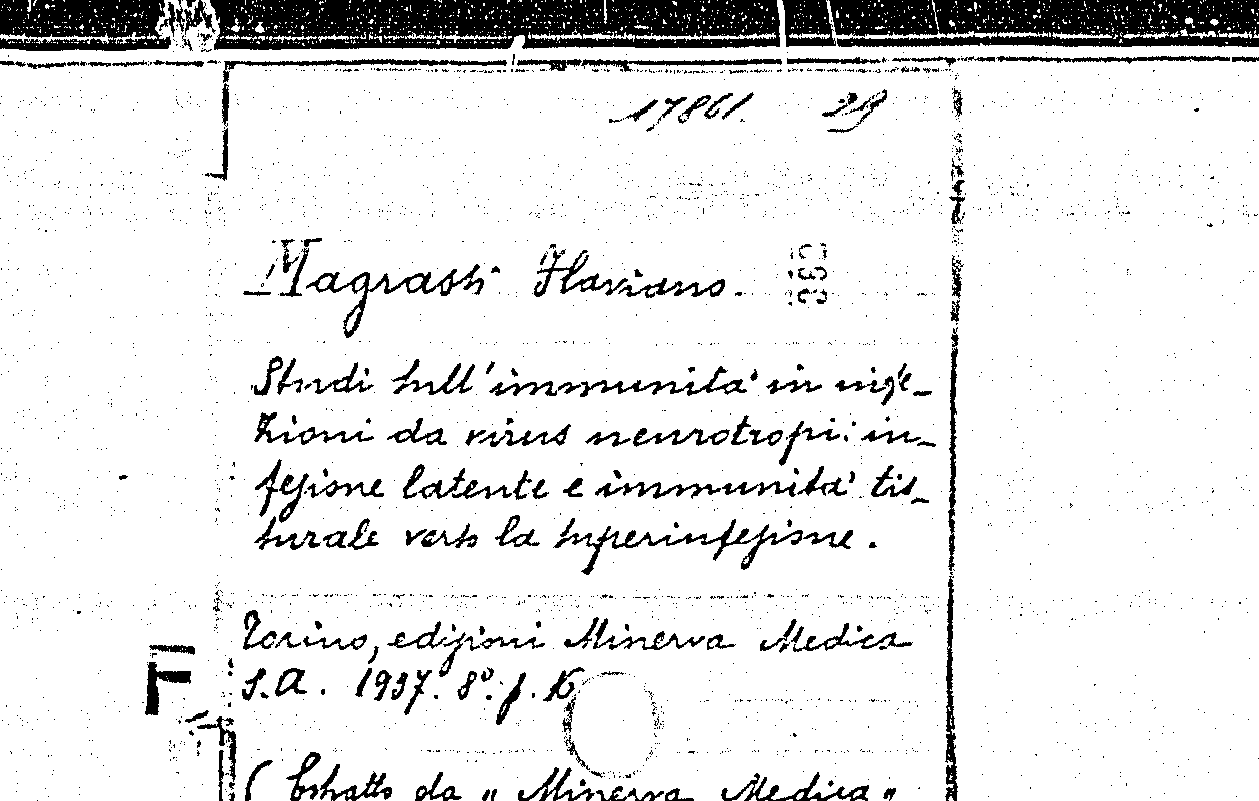 17861. 29
Magrassi Flaviano.
Studi sull'immunità in infe-
zioni da virus neurotropi: in-
fezione latente e immunità tis-
surale verso la superinfezione.
Torino, edizioni Minerva Medica
S.A. 1937. 8°. p. 16
F
( Estratto da " Minerva Medica "